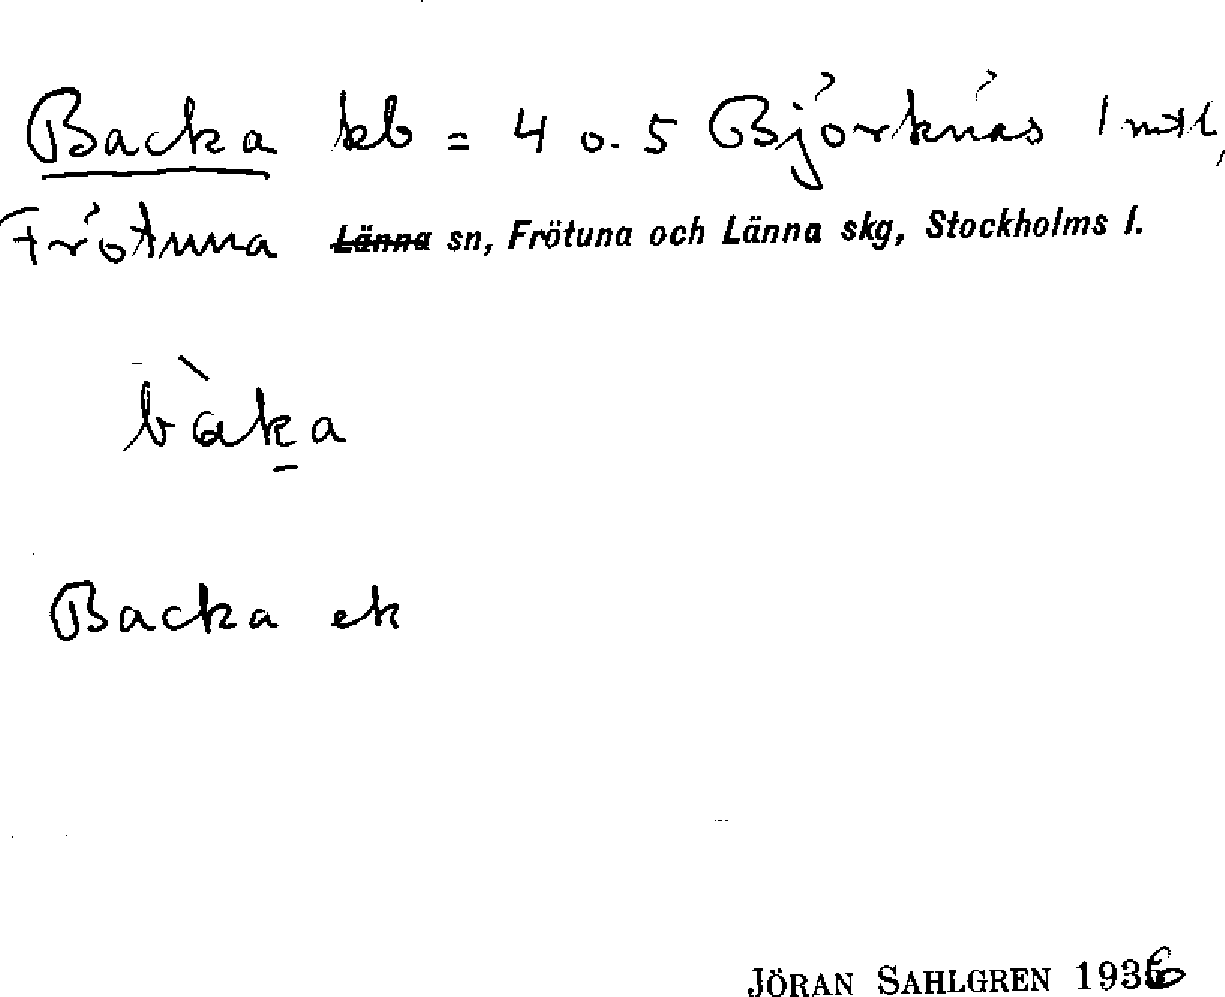 Backa kb = 4 o. 5 Björknäs 1 mtl,
Frötuna Länna sn, Frötuna och Länna skg, Stockholms l.
bàka
Backa ek
JÖRAN SAHLGREN 1936